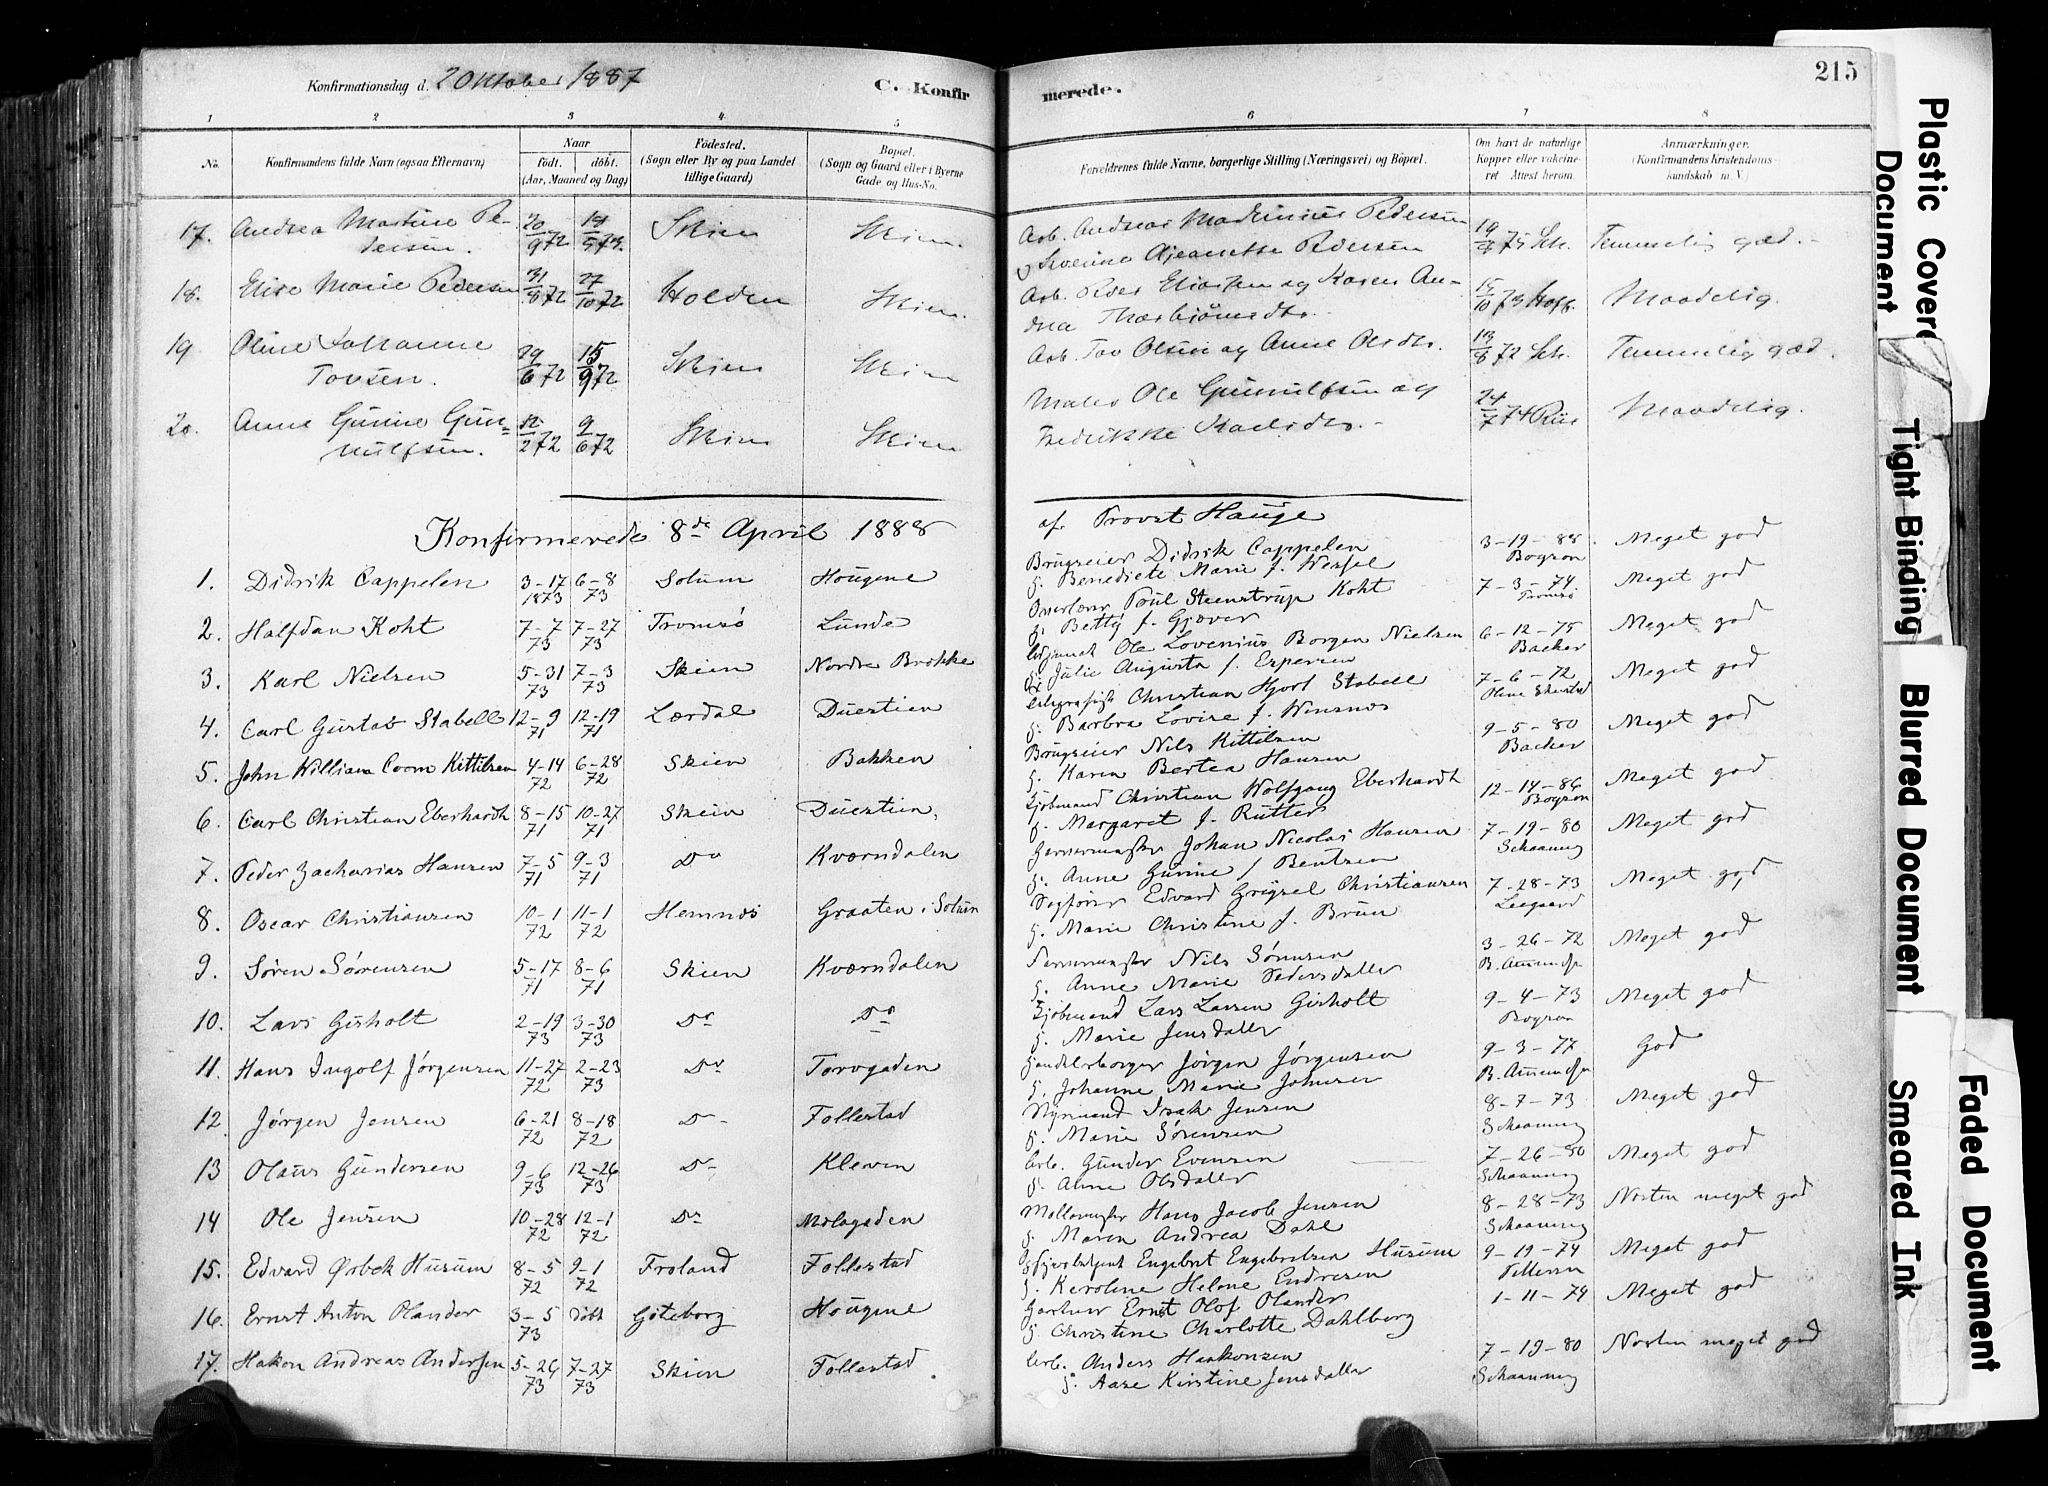 Konfirmationsdag d. 2 Oktober 1887
C. Konfirmerede.
215
1 2 3 4 5 6 7 8
No.
Konfirmandens fulde Navn (ogsaa Efternavn)
Naar
født. døbt.
(Aar, Maaned og Dag)
Fødested.
(Sogn eller By og paa Landet
tillige Gaard)
Bopæl.
(Sogn og Gaard eller i Byerne
Gade og Hus-No.
Forældrenes fulde Navne, borgerlige Stilling (Næringsvei) og Bopæl.
Om havt de naturlige
Kopper eller vakcine-
ret Attest herom.
Anmærkninger.
(Konfirmandens Kristendoms-
kundskab m. V.)
17. Andrea Martine Pe- 20/9 72 14/5 73 Skien Skien. Arb. Andreas Pedersen 75 Sch. Temmelig god.
dersen.
18. Elise Marie Pedersen 31/8 72 27/10 72 Holden Skien. Arb. Peder Eliassen og Karen An- 15/10 73 Maadelig.
drea
19 Oline Johanne 29/6 72 15/9 72 Skien Skien Arb. Tov Olsen og Anne Olsdtr. 19/8 72 Sch. Temmelig god.
Tovsen.
20. Anne Gunine Gun= 2 72 9/6 72 Skien Skien Maler Ole Gunnulfsen og 24/7 74 Riis Maadelig.
nulfsen. Fredrikke
Konfirmerede 8de April 1888 af Provst Hauge
1. Didrik Cappelen 3-17 1873 6-8 73 Solum Hougene Brugseier Didrik Cappelen 3-19-88 Bogron Meget god
g. Benedicte Marie f. Wessel
2. Halfdan Koht 7-7 73 7-27 73 Tromsø Lunde Overlærer Poul Steenstrup Koht 7-3-74 Tromsø Meget god
g. Betty f. Gjæver
3. Karl Nielsen 5-31 73 7-3 73 Skien Nordre Brekke Adjunct Ole Lovenius Borgen Nielsen 6-12-75 Backer Meget god
g. Julie Augusta f. Espersen
4. Carl Gustav Stabell 12-9 71 12-19 71 Lærdal Duestien Telegrafist Christian Hjort Stabell 7-6-72 Meget god
g. Barbra Lovise f. Wensnos
5. John William Coom Kittilsen 4-14 72 6-28 72 Skien Bakken Brugseier Nils Kittilsen 9-5-80 Backer Meget god
g. Karen Bertea Hansen
6. Carl Christian Eberhardt 8-15 71 10-27 71 Skien Duestien, Kjøbmand Christian Wolfgang Eberhardt 12-14-86 Bogron Meget god
g. Margaret f. Rutter
7. Peder Zacharias Hansen 7-5 71 9-3 71 Do Kværndalen Garvermester Johan Nicolai Hansen 7-19-80 Schaaning Meget god
g. Anne Gurine f Bentzen
8. Oscar Christiansen 10-1 72 11-1 72 Hemnæs Graaten i Solum Edvard Grysel Christiansen 7-28-73 Meget god
g. Marie Christine f. Brun
9. Søren Sørensen 5-17 71 8-6 71 Skien Kværndalen Nils Sørensen 3-26-72 B. Amundsn Meget god
g. Anne Marie Pedersdatter
10. Lars Gisholt 2-19 73 3-30 73 Do Do Kjøbmand Lars Larsen Gisholt 9-4-73 Bogron Meget god
g. Marie Jensdatter
11. Hans Ingolf Jörgensen 11-27 72 2-23 73 Do Torvgaden Handelsborger Jørgen Jörgensen 9-3-77 B. Amundsn God
g. Johanne Marie Johnsen
12. Jørgen Jensen 6-21 72 8-18 72 D- Follestad Isak Jensen 8-7-73 Schaaning Meget god
g. Marie Sørensen
13 Olaus Gundersen 9-6 73 12-26 73 D- Kleven Arb. Gunder Evensen 7-26-80 Schaaning Meget god
g. Anne Olsdatter
14 Ole Jensen 10-28 72 12-1 72 Do Mølagaden Møllemester Hans Jacob Jensen 8-28-73 Schaaning Næsten meget god
g. Maren Andrea Dahl
15. Edvard Ørbek Husum 8-5 72 9-1 72 Froland Follestad Engebret Engebretsen Husum 9-19-74 Pettersen Meget god
g. Karoline Helene Endresen
16. Ernst Anton Olander 3-5 73 døbt Göteborg Hougene Gartner Ernst Olof Olander 1-11-74 Meget god
g. Christine Charlotte Dahlborg
17. Hakon Andreas Andersen 5-26 73 7-27 73 Skien Follestad Arb. Anders Haakonsen 7-19-80 Schaaning Næsten meget god
g. Aase Kirstine Jensdatter
Plastic Covered Document
Tight Binding
Blurred Document
Faded Document
Smeared Ink